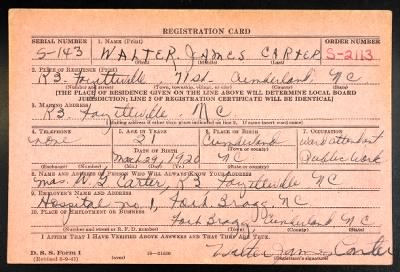 REGISTRATION CARD
SERIAL NUMBER 1. NAME (Print) ORDER NUMBER
S-143 WALTER JAMES CARTER S-2113
(First) (Middle) (Last)
2. PLACE OF RESIDENCE (Print)
R3. Fayettville, 71st. Cumberland, NC
(Number and street) (Town, township, village, or city) (County) (State)
[THE PLACE OF RESIDENCE GIVEN ON THE LINE ABOVE WILL DETERMINE LOCAL BOARD
JURISDICTION; LINE 2 OF REGISTRATION CERTIFICATE WILL BE IDENTICAL]
3. MAILING ADDRESS
R3. Fayettville NC
[Mailing address if other than place indicated on line 2. If same insert word same]
4. TELEPHONE 5. AGE IN YEARS 6. PLACE OF BIRTH 7. OCCUPATION
none 21 Cumberland ward attendant
DATE OF BIRTH (Town or county)
March 29, 1920 NC Public Work
(Exchange) (Number) (Mo.) (Day) (Yr.) (State or country)
8. NAME AND ADDRESS OF PERSON WHO WILL ALWAYS KNOW YOUR ADDRESS
Mrs. Carter, R3 Fayettville NC
9. EMPLOYER'S NAME AND ADDRESS
Hospital no. 1, Fort Bragg, NC
10. PLACE OF EMPLOYMENT OR BUSINESS
Fort Bragg, Cumberland NC
(Number and street or R. F. D. number) (Town) (County) (State)
I AFFIRM THAT I HAVE VERIFIED ABOVE ANSWERS AND THAT THEY ARE TRUE.
D. S. S. Form 1
(Revised (over) Walter James Carter
(Registrant's signature)